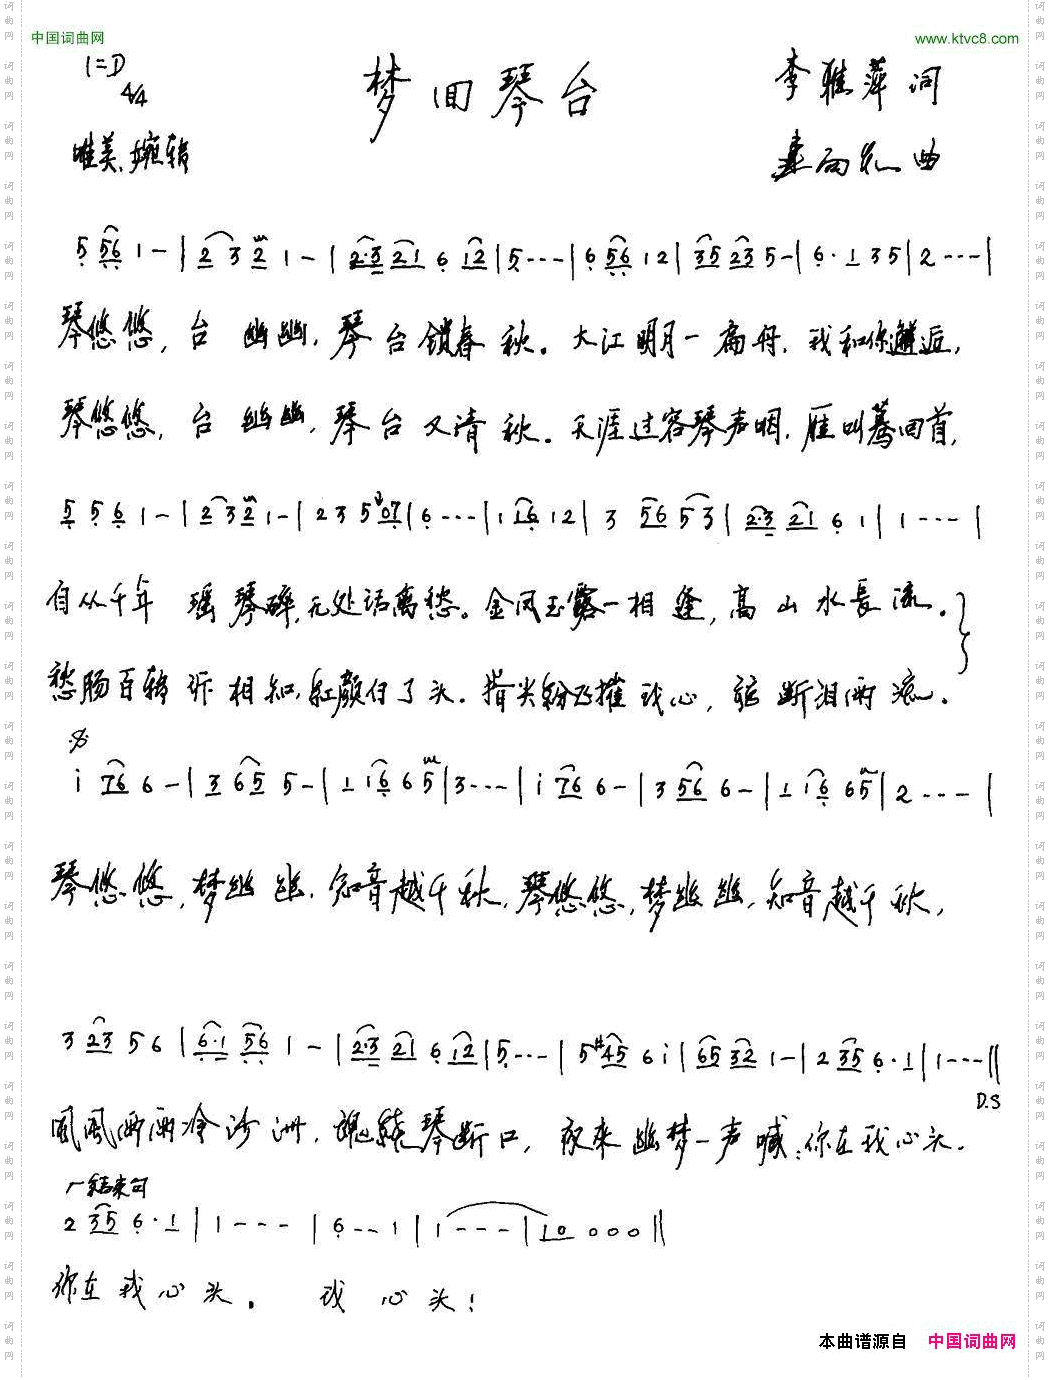 中国词曲网 www.ktvc8.com
1=D 4/4
梦回琴台
李雅萍 词
唯美、婉转
雨 曲
5 56 1 - | 2 3 2 1 - | 2·3 21 6 12 | 5 - - - | 6 56 12 | 35 23 5 - | 6· 1 35 | 2 - - - |
琴悠悠，台 幽幽，琴台锁春秋。大江明月一扁舟，我和你邂逅，
琴悠悠，台 幽幽，琴台又清秋。天涯过客琴声咽，雁叫蓦回首，
5 5 6 1 - | 2 3 2 1 - | 2 3 5 07 | 6 - - - | 1 16 12 | 3 56 53 | 2·3 21 6 1 | 1 - - - |
自从千年 瑶琴碎，无处话离愁。金风玉露一相逢，高山水長流。
愁肠百转诉相知，红颜付了头。指尖纷飞摧我心，弦断泪两流。
i 76 6 - | 3 65 5 - | 1 16 6 5 | 3 - - - | i 76 6 - | 3 56 6 - | 1 16 65 | 2 - - - |
琴悠悠，梦幽幽，知音越千秋，琴悠悠，梦幽幽，知音越千秋，
3 23 5 6 | 6·1 56 1 - | 2·3 21 6 12 | 5 - - - | 5 #45 6 i | 65 32 1 - | 2 35 6·1 | 1 - - - ||
D.S
风风雨雨冷沙洲，魂绕琴断口，夜来幽梦一声喊：你在我心头。
结束句
2 35 6·1 | 1 - - - | 6 - - 1 | 1 - - - | 10 0 0 0 ||
你在我心头。 我心头！
本曲谱源自 中国词曲网